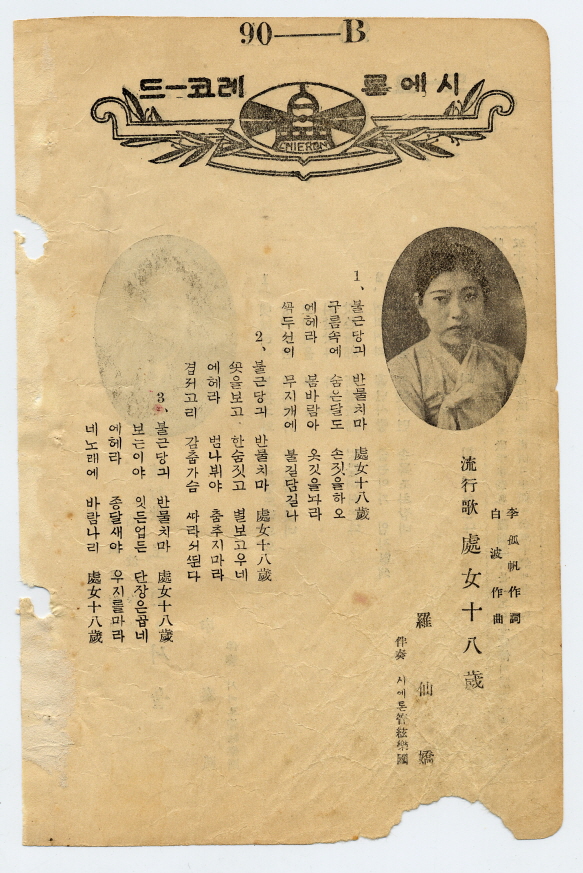 90——B
시에론 레코ー드
CHIERON
李孤帆 作詞
白波 作曲
流行歌 處女十八歲
羅仙嬌
伴奏 시에론管絃樂團
1、불근당긔 반물치마 處女十八歲
구름속에 숨은달도 손짓을하오
에헤라 봄바람아 옷깃을놔라
쌍두선이 무지개에 불길담길나
2、불근당긔 반물치마 處女十八歲
꼿을보고 한숨짓고 별보고우네
에헤라 범나뷔야 춤추지마라
겹저고리 감춤가슴 따라쇠쉰다
3、불근당긔 반물치마 處女十八歲
보는이야 잇든업든 단장은곱네
에헤라 종달새야 우지를마라
네노래에 바람나리 處女十八歲